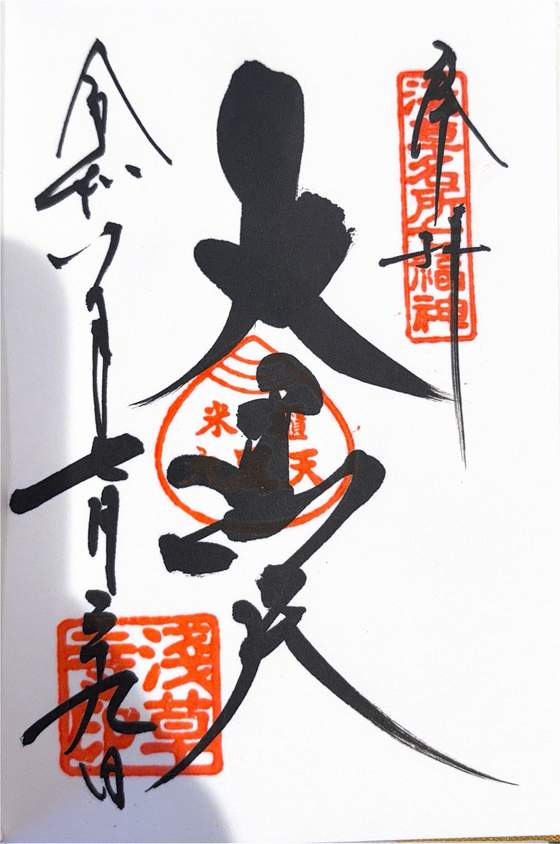 奉拝
浅草名所七福神
大黒天
令和六年七月二十九日
淺草